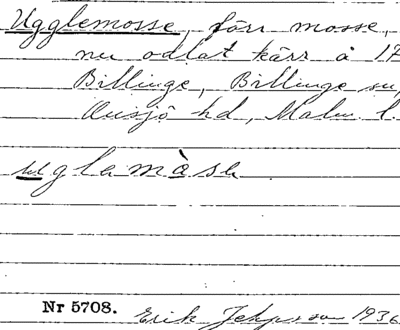 Ugglemosse, förr mosse,
nu odlat kärr å 17
Billinge, Billinge sn,
Onsjö hd, Malm. l.
uglamåsa
Nr 5708. Erik Jeppsson 1936